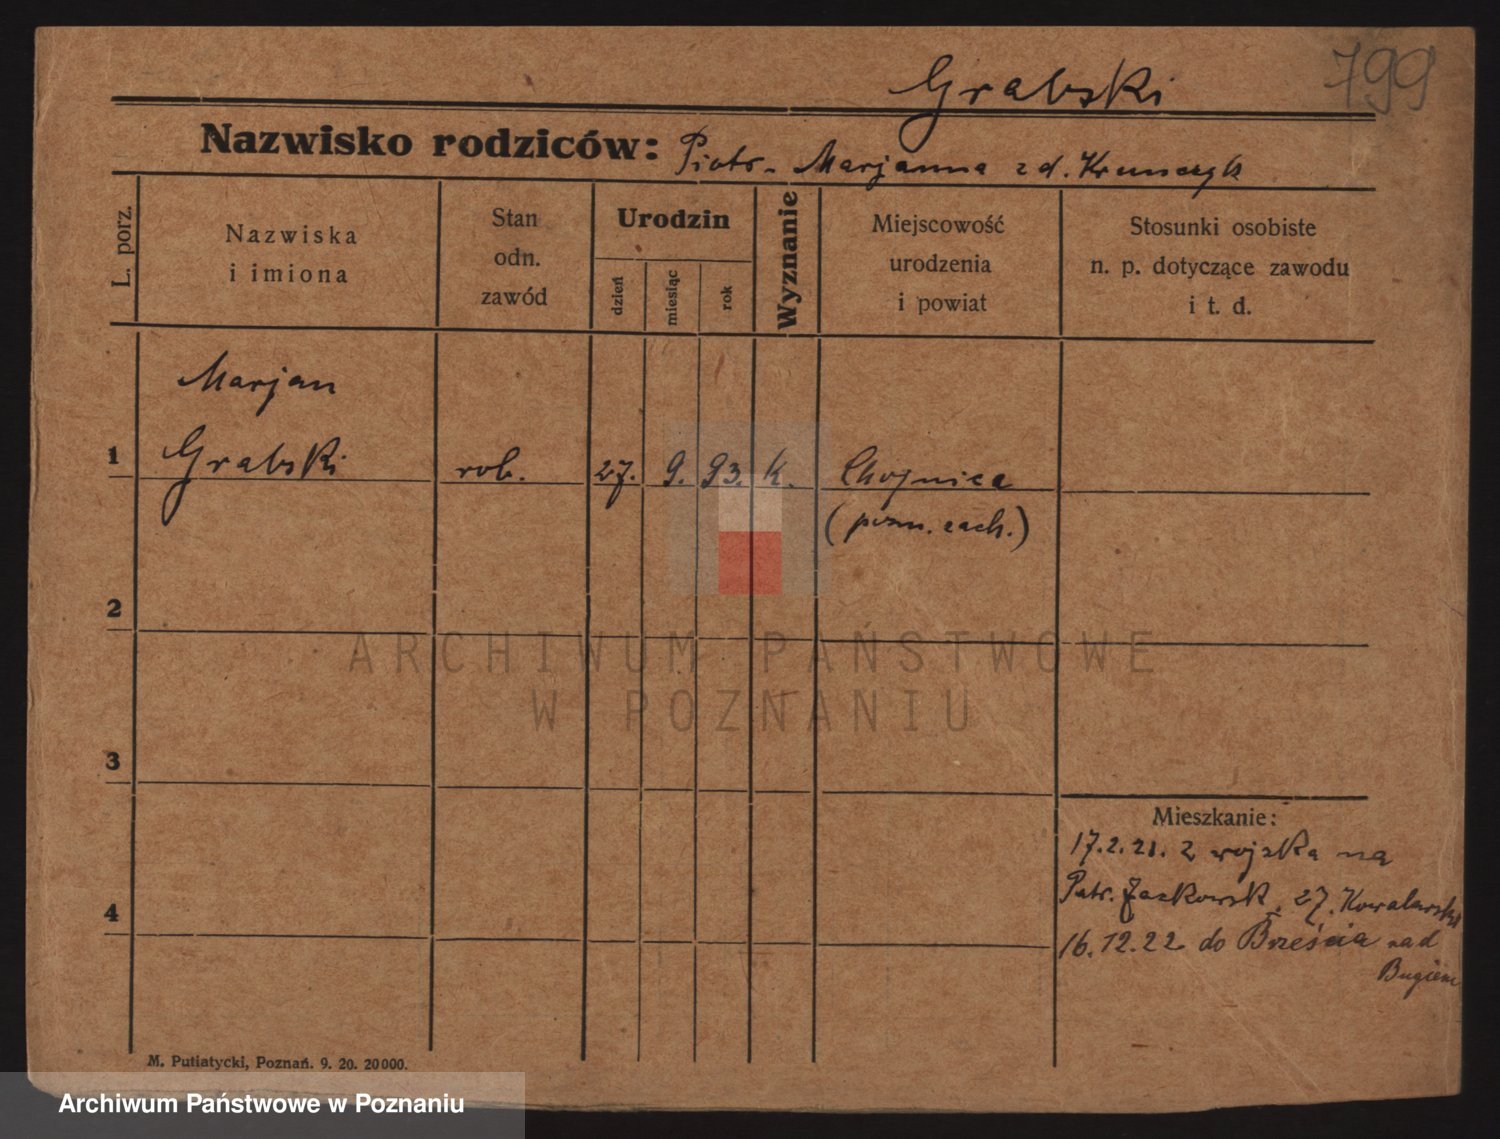 Grabski
799
Nazwisko rodziców: Piotr - Marjanna z d. Krunczyk
L. porz.
Nazwiska
i imiona
Stan
odn.
zawód
Urodzin
dzień
miesiąc
rok
Wyznanie
Miejscowość
urodzenia
i powiat
Stosunki osobiste
n. p. dotyczące zawodu
i t. d.
Marjan
1 Grabski rob. 27. 9. 93. k. Chojnica
(pozn. zach.)
2
ARCHIWUM PAŃSTWOWE
W POZNANIU
3
4
Mieszkanie:
17.2.21. z wojska na
Patr. Jackowsk. 27. Kowalewski
16.12.22 do Brześcia nad
Bugiem
M. Putiatycki, Poznań. 9. 20. 20000.
Archiwum Państwowe w Poznaniu